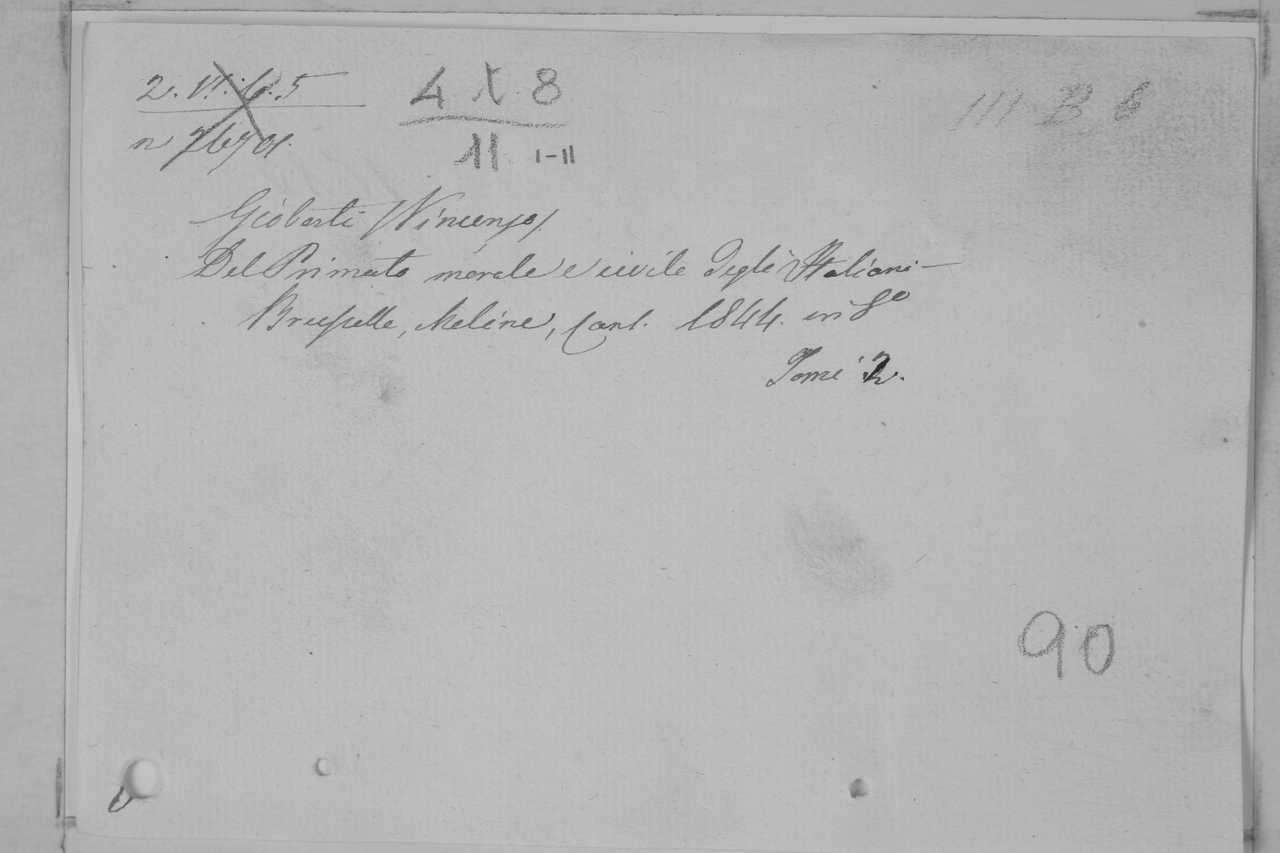 2. VI. 6. 5
4 X 8
III B 6
11 I-II
Gioberti (Vincenzo)
Del Primato morale e civile degli Italiani —
Bruselle, Meline, Cans. 1844. in 8°
Tomi 2.
90